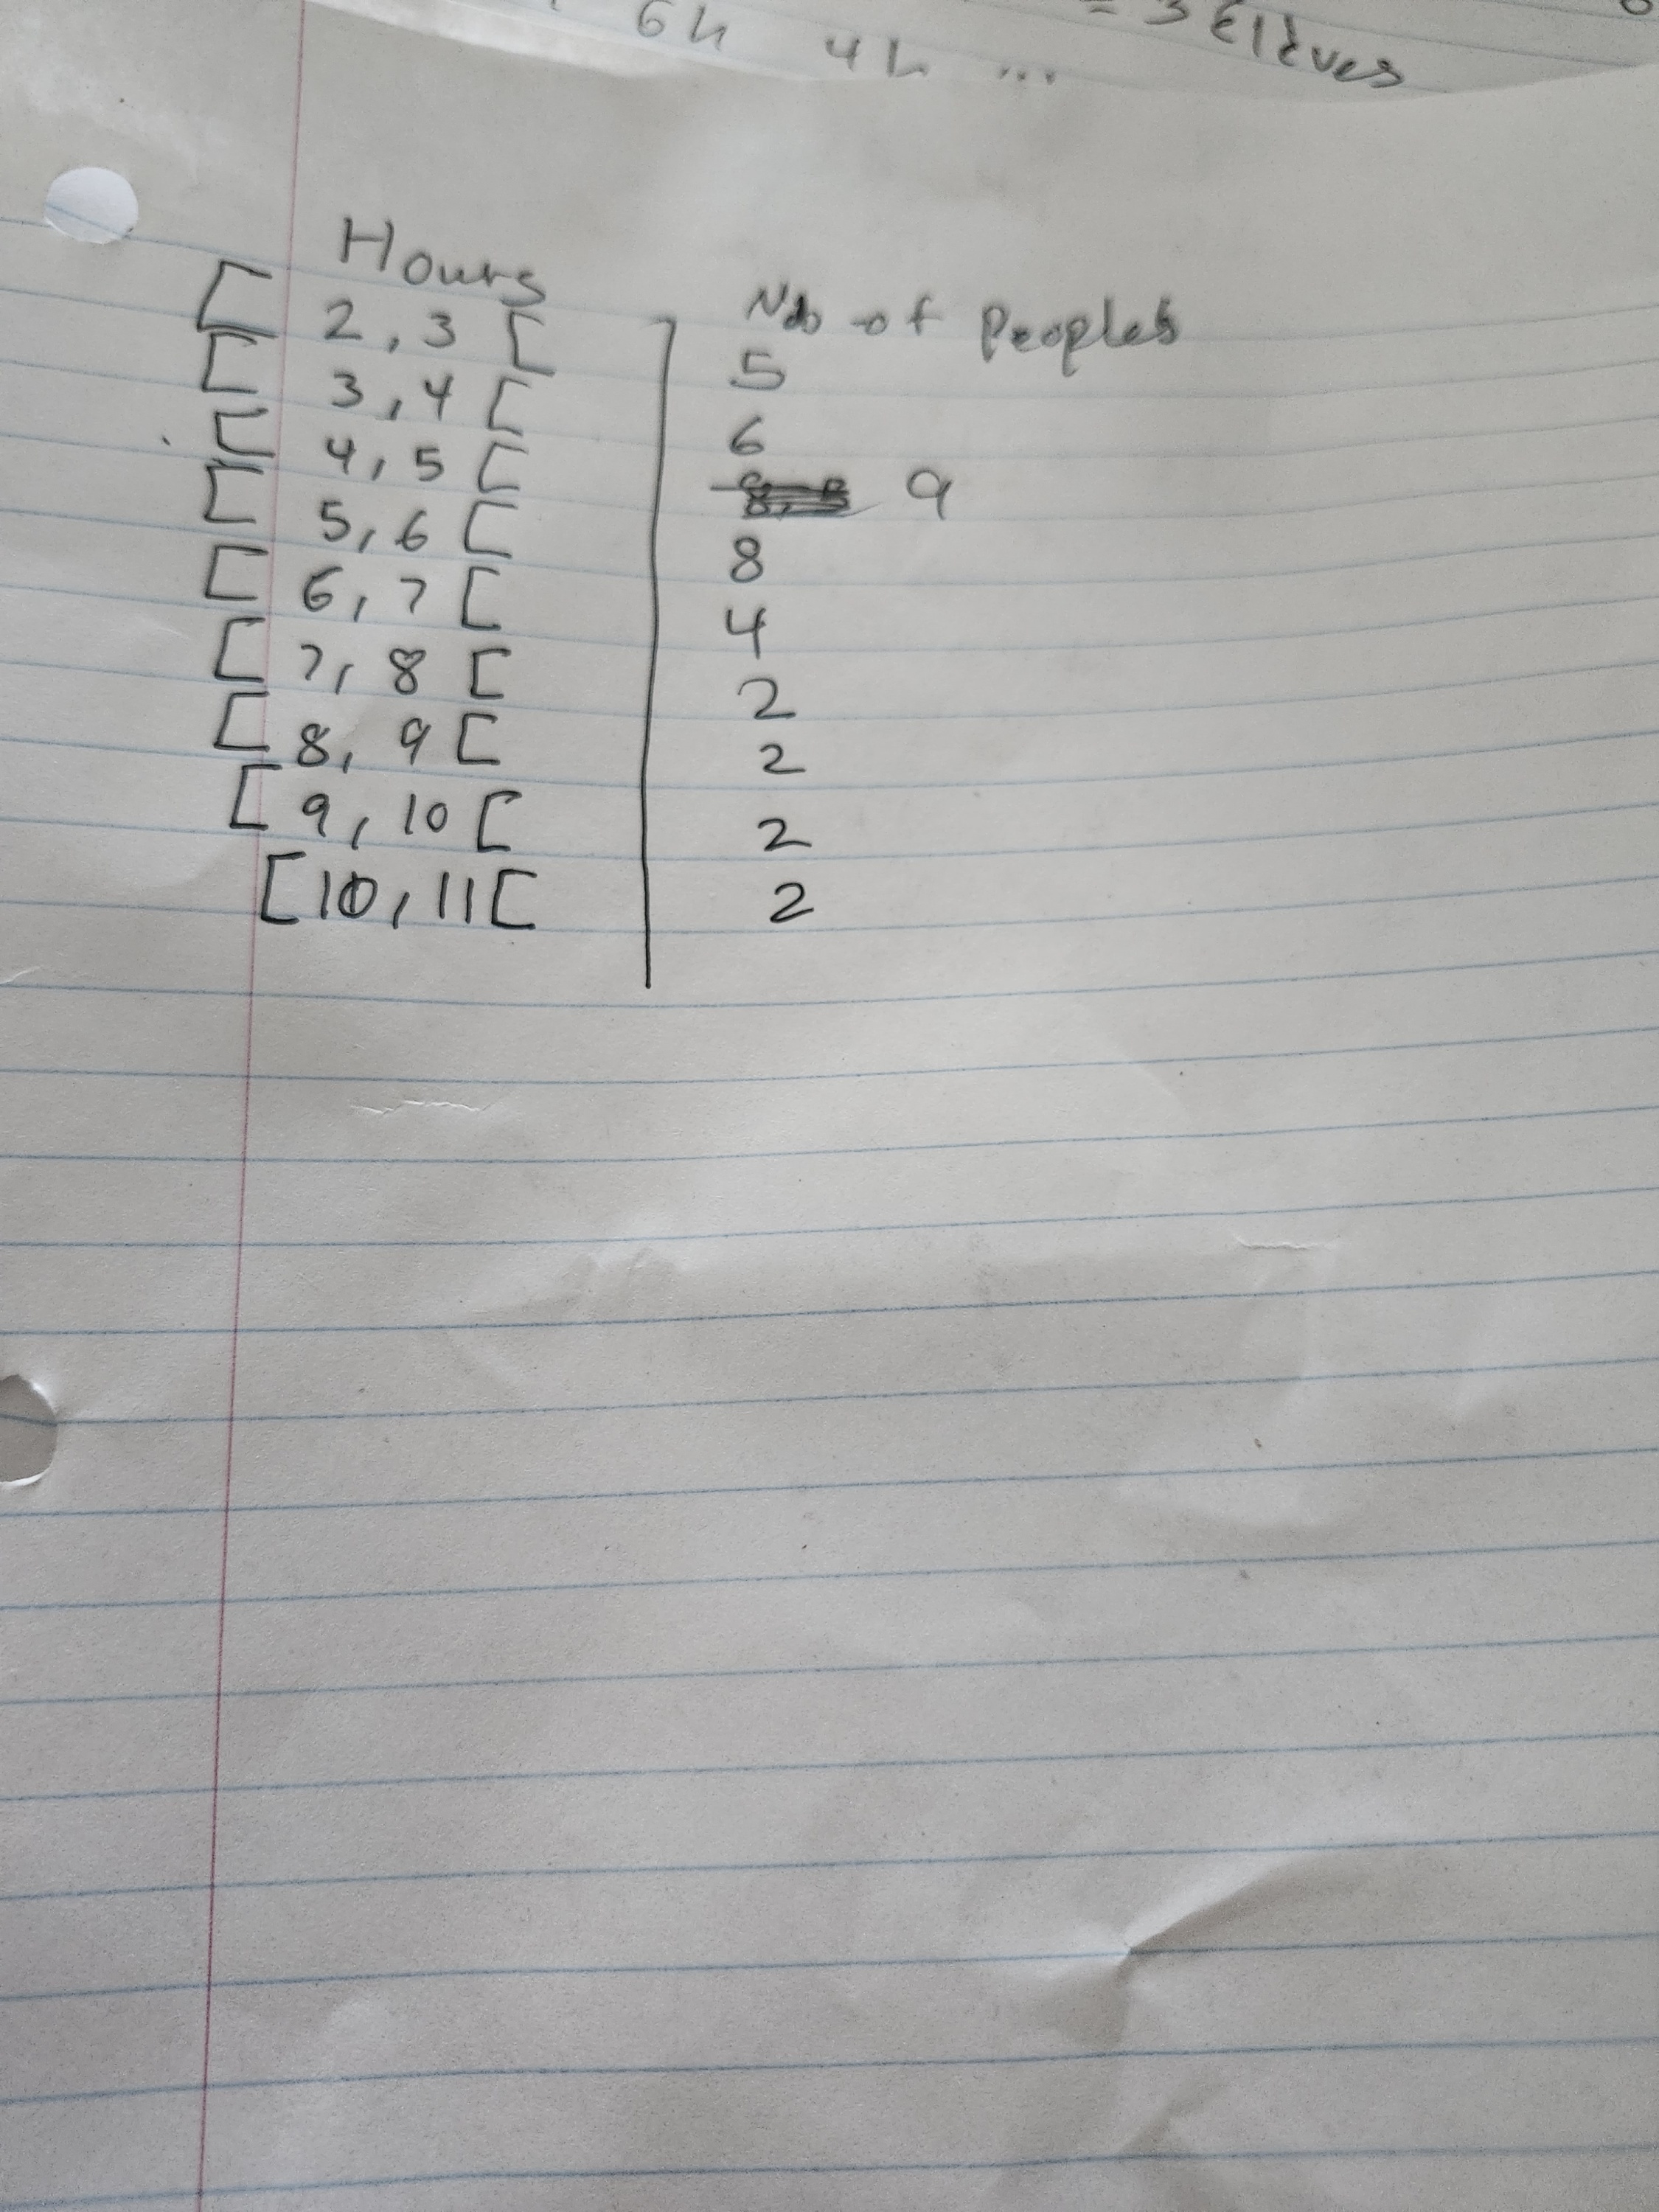 6h 4h ...
= 3 élèves
Hours
Nb of Peoples
[ 2, 3 [ 5
[ 3, 4 [ 6
[ 4, 5 [ 9
[ 5, 6 [ 8
[ 6, 7 [ 4
[ 7, 8 [ 2
[ 8, 9 [ 2
[ 9, 10 [ 2
[ 10, 11 [ 2